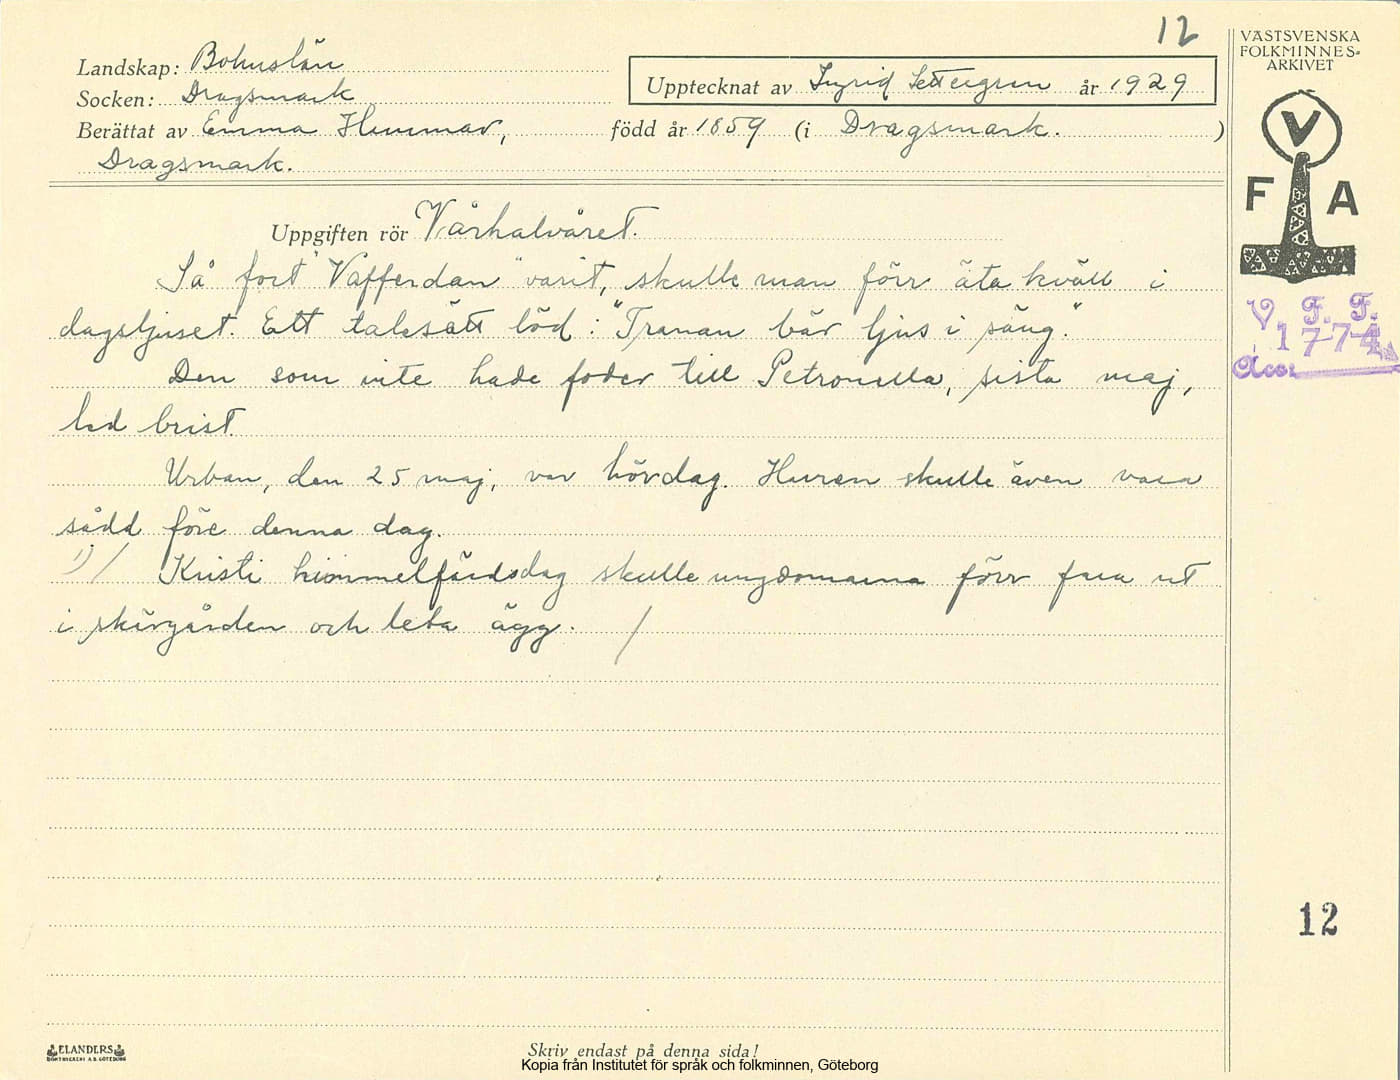 12
VÄSTSVENSKA
FOLKMINNES-
ARKIVET
Landskap: Bohuslän
Upptecknat av Ingrid Settergren år 1929
Socken: Dragsmark
Berättat av Emma Hummar, född år 1859 (i Dragsmark. )
Dragsmark.
V
F A
Uppgiften rör Vårhalvåret.
Så fort "Vafferdan" varit, skulle man förr äta kväll i
dagsljuset. Ett talesätt löd: "Tranan bär ljus i säng."
Den som inte hade foder till Petronella, sista maj,
led brist.
Urban, den 25 maj, var bördag. Huren skulle även vara
sådd före denna dag.
1) / Kristi himmelfärdsdag skulle ungdomarna förr fara ut
i skärgården och leta ägg. /
V. F. F.
1774
Acc.
12
ELANDERS
BOKTRYCKERI A.B. GÖTEBORG
Skriv endast på denna sida!
Kopia från Institutet för språk och folkminnen, Göteborg